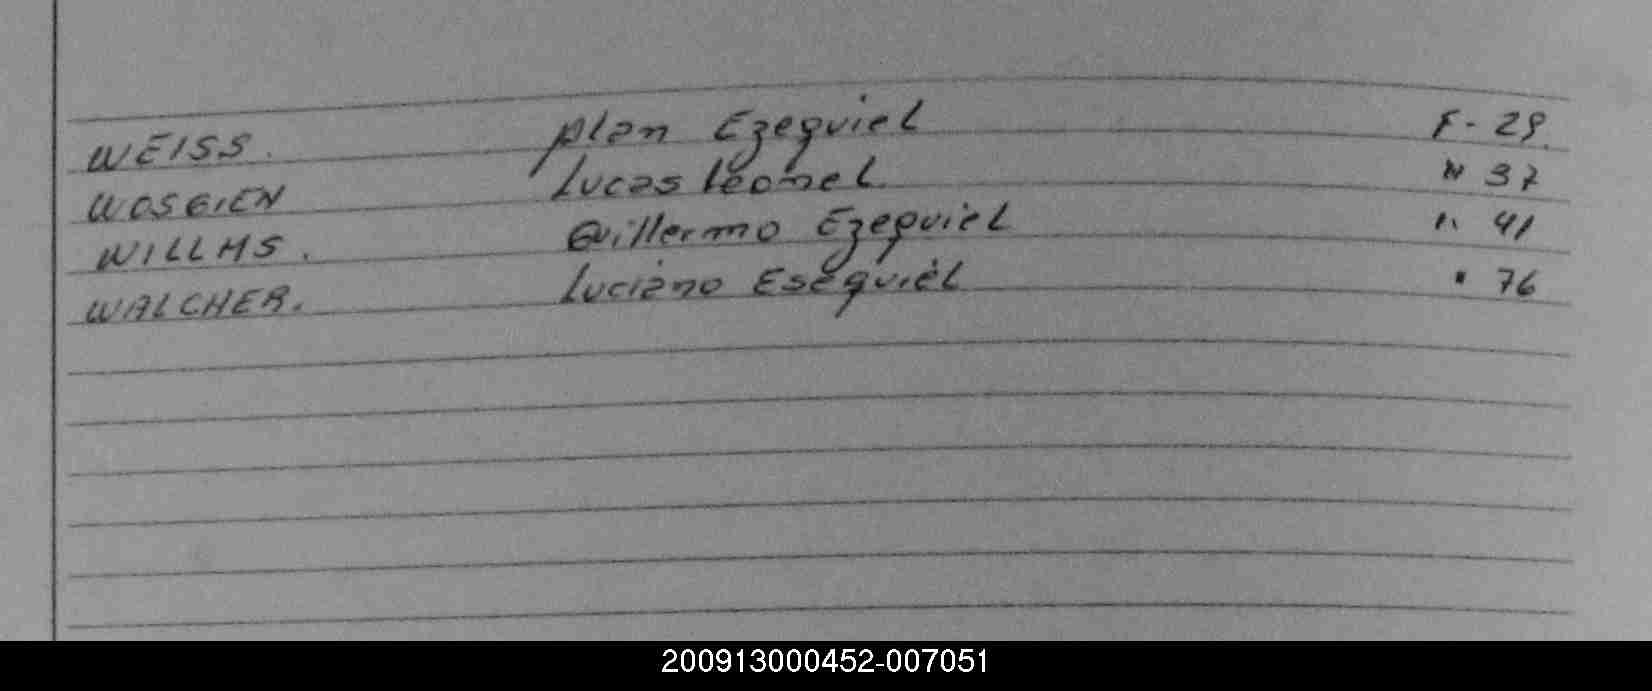 WEISS. Alan Ezequiel F-29.
WOSGIEN Lucas Leonel " 37
WILLMS. Guillermo Ezequiel " 41
WALCHER. Luciano Esequiel " 76
200913000452-007051